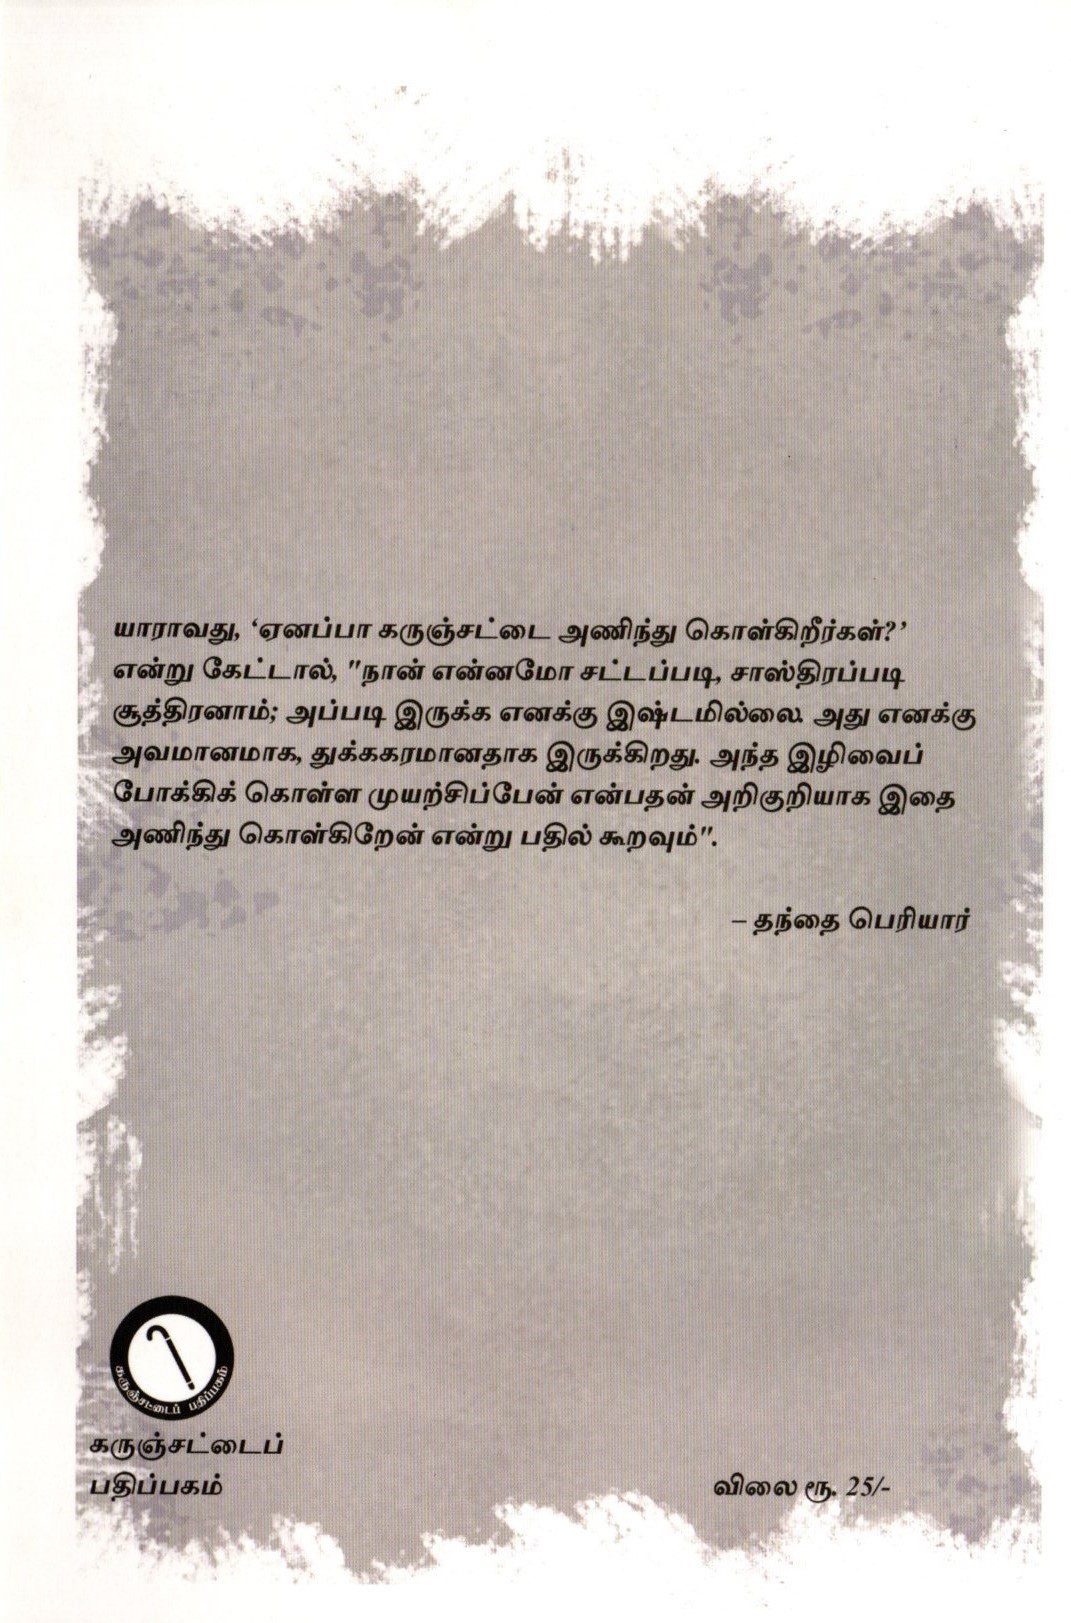 யாராவது, ‘ஏனப்பா கருஞ்சட்டை அணிந்து கொள்கிறீர்கள்?’
என்று கேட்டால், "நான் என்னமோ சட்டப்படி, சாஸ்திரப்படி
சூத்திரனாம்; அப்படி இருக்க எனக்கு இஷ்டமில்லை. அது எனக்கு
அவமானமாக, துக்ககரமானதாக இருக்கிறது. அந்த இழிவைப்
போக்கிக் கொள்ள முயற்சிப்பேன் என்பதன் அறிகுறியாக இதை
அணிந்து கொள்கிறேன் என்று பதில் கூறவும்".
– தந்தை பெரியார்
கருஞ்சட்டைப் பதிப்பகம்
கருஞ்சட்டைப்
பதிப்பகம்
விலை ரூ. 25/-